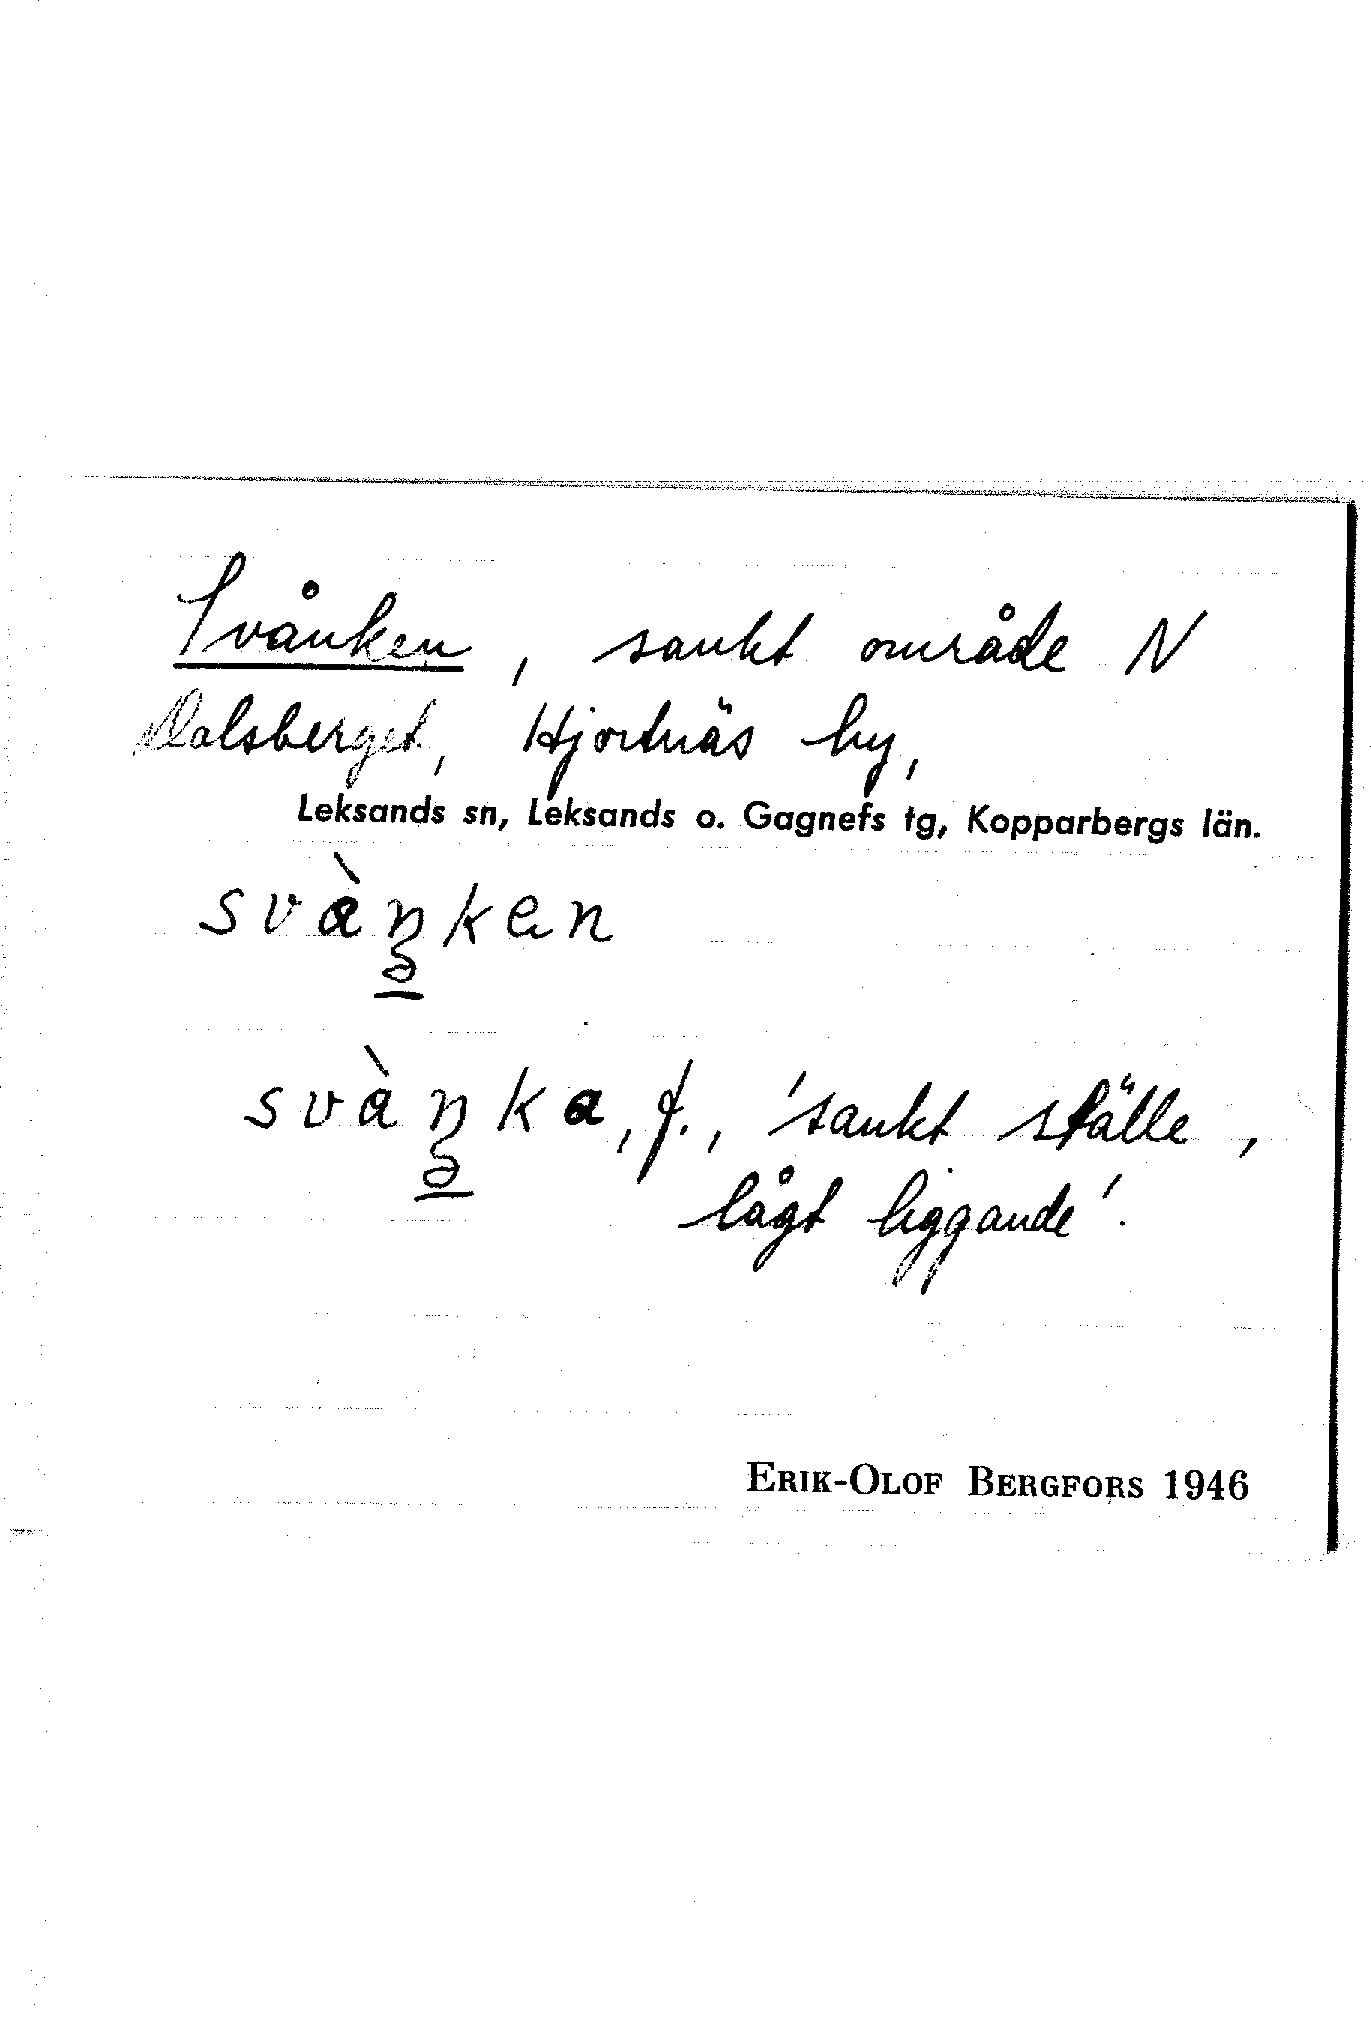 Svånken, sankt område N
Dalsberget, Hjortnäs by,
Leksands sn, Leksands o. Gagnefs tg, Kopparbergs län.
svàŋken
svàŋka, f., 'sankt ställe,
lågt liggande'.
ERIK-OLOF BERGFORS 1946